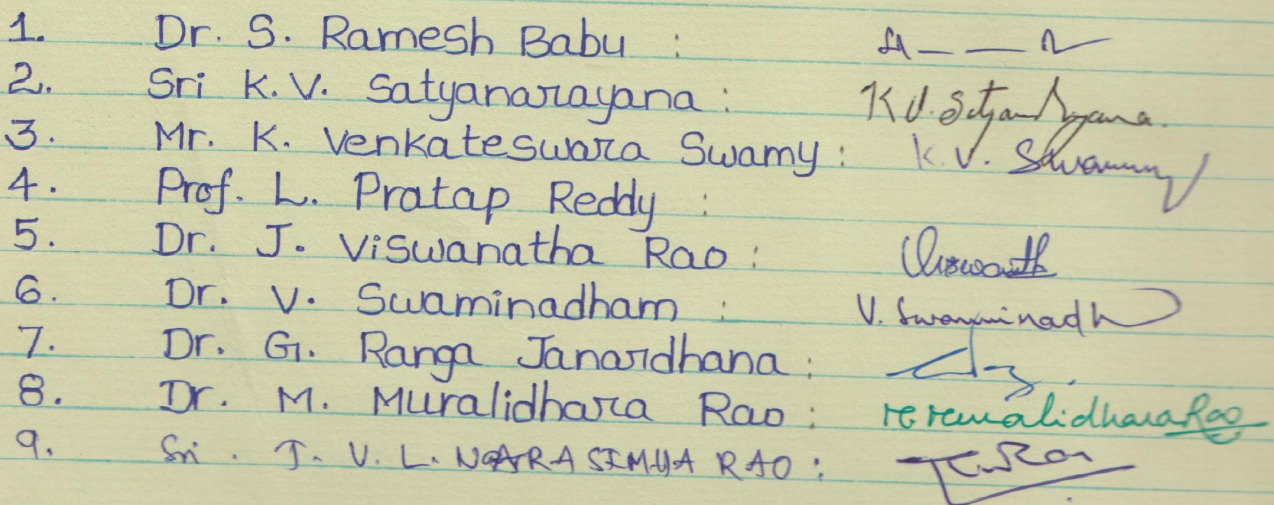 1. Dr. S. Ramesh Babu :
2. Sri K.V. Satyanarayana : K.V. Satyanarayana
3. Mr. K. Venkateswara Swamy : K.V. Swamy
4. Prof. L. Pratap Reddy :
5. Dr. J. Viswanatha Rao : Viswanath
6. Dr. V. Swaminadham : V. Swaminadh
7. Dr. G. Ranga Janardhana :
8. Dr. M. Muralidhara Rao : M Muralidhara Rao
9. Sri. J. V. L. NARASIMHA RAO :